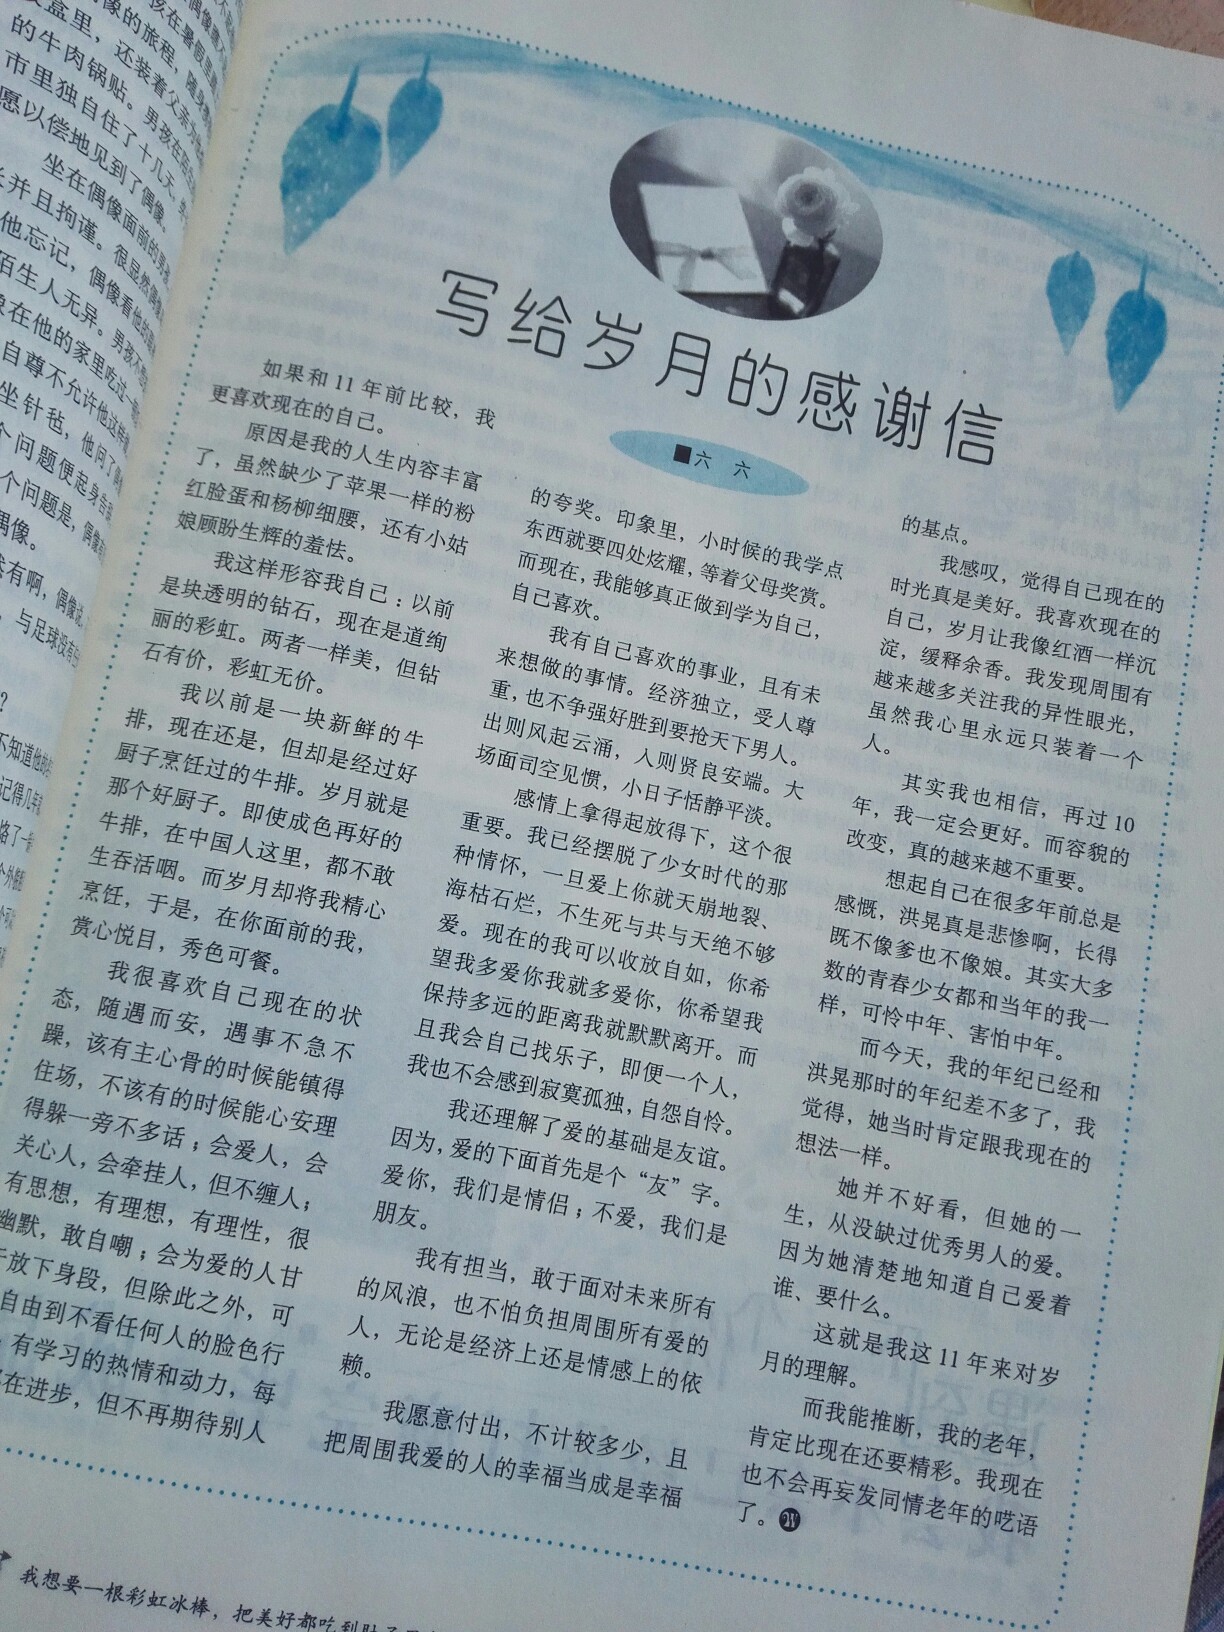 的牛肉锅贴。男孩在
市里独自住了十几天，
愿以偿地见到了偶像。
坐在偶像面前的男孩
并且拘谨。很显然偶像
他忘记，偶像看他的
陌生人无异。男孩不
在他的家里吃过一顿
自尊不允许他这样
坐针毡，他问了偶
个问题便起身告
个问题是，偶像
偶像。
有啊，偶像说，
与足球没有
？
写给岁月的感谢信
■六 六
如果和11年前比较，我
更喜欢现在的自己。
原因是我的人生内容丰富
了，虽然缺少了苹果一样的粉
红脸蛋和杨柳细腰，还有小姑
娘顾盼生辉的羞怯。
我这样形容我自己：以前
是块透明的钻石，现在是道绚
丽的彩虹。两者一样美，但钻
石有价，彩虹无价。
我以前是一块新鲜的牛
排，现在还是，但却是经过好
厨子烹饪过的牛排。岁月就是
那个好厨子。即使成色再好的
牛排，在中国人这里，都不敢
生吞活咽。而岁月却将我精心
烹饪，于是，在你面前的我，
赏心悦目，秀色可餐。
我很喜欢自己现在的状
态，随遇而安，遇事不急不
躁，该有主心骨的时候能镇得
住场，不该有的时候能心安理
得躲一旁不多话；会爱人，会
关心人，会牵挂人，但不缠人；
有思想，有理想，有理性，很
幽默，敢自嘲；会为爱的人甘
于放下身段，但除此之外，可
自由到不看任何人的脸色行
有学习的热情和动力，每
在进步，但不再期待别人
的夸奖。印象里，小时候的我学点
东西就要四处炫耀，等着父母奖赏。
而现在，我能够真正做到学为自己，
自己喜欢。
我有自己喜欢的事业，且有未
来想做的事情。经济独立，受人尊
重，也不争强好胜到要抢天下男人。
出则风起云涌，入则贤良安端。大
场面司空见惯，小日子恬静平淡。
感情上拿得起放得下，这个很
重要。我已经摆脱了少女时代的那
种情怀，一旦爱上你就天崩地裂、
海枯石烂，不生死与共与天绝不够
爱。现在的我可以收放自如，你希
望我多爱你我就多爱你，你希望我
保持多远的距离我就默默离开。而
且我会自己找乐子，即便一个人，
我也不会感到寂寞孤独，自怨自怜。
我还理解了爱的基础是友谊。
因为，爱的下面首先是个“友”字。
爱你，我们是情侣；不爱，我们是
朋友。
我有担当，敢于面对未来所有
的风浪，也不怕负担周围所有爱的
人，无论是经济上还是情感上的依
赖。
我愿意付出，不计较多少，且
把周围我爱的人的幸福当成是幸福
的基点。
我感叹，觉得自己现在的
时光真是美好。我喜欢现在的
自己，岁月让我像红酒一样沉
淀，缓释余香。我发现周围有
越来越多关注我的异性眼光，
虽然我心里永远只装着一个
人。
其实我也相信，再过10
年，我一定会更好。而容貌的
改变，真的越来越不重要。
想起自己在很多年前总是
感慨，洪晃真是悲惨啊，长得
既不像爹也不像娘。其实大多
数的青春少女都和当年的我一
样，可怜中年、害怕中年。
而今天，我的年纪已经和
洪晃那时的年纪差不多了，我
觉得，她当时肯定跟我现在的
想法一样。
她并不好看，但她的一
生，从没缺过优秀男人的爱。
因为她清楚地知道自己爱着
谁、要什么。
这就是我这11年来对岁
月的理解。
而我能推断，我的老年，
肯定比现在还要精彩。我现在
也不会再妄发同情老年的呓语
了。
我想要一根彩虹冰棒，把美好都吃到肚子